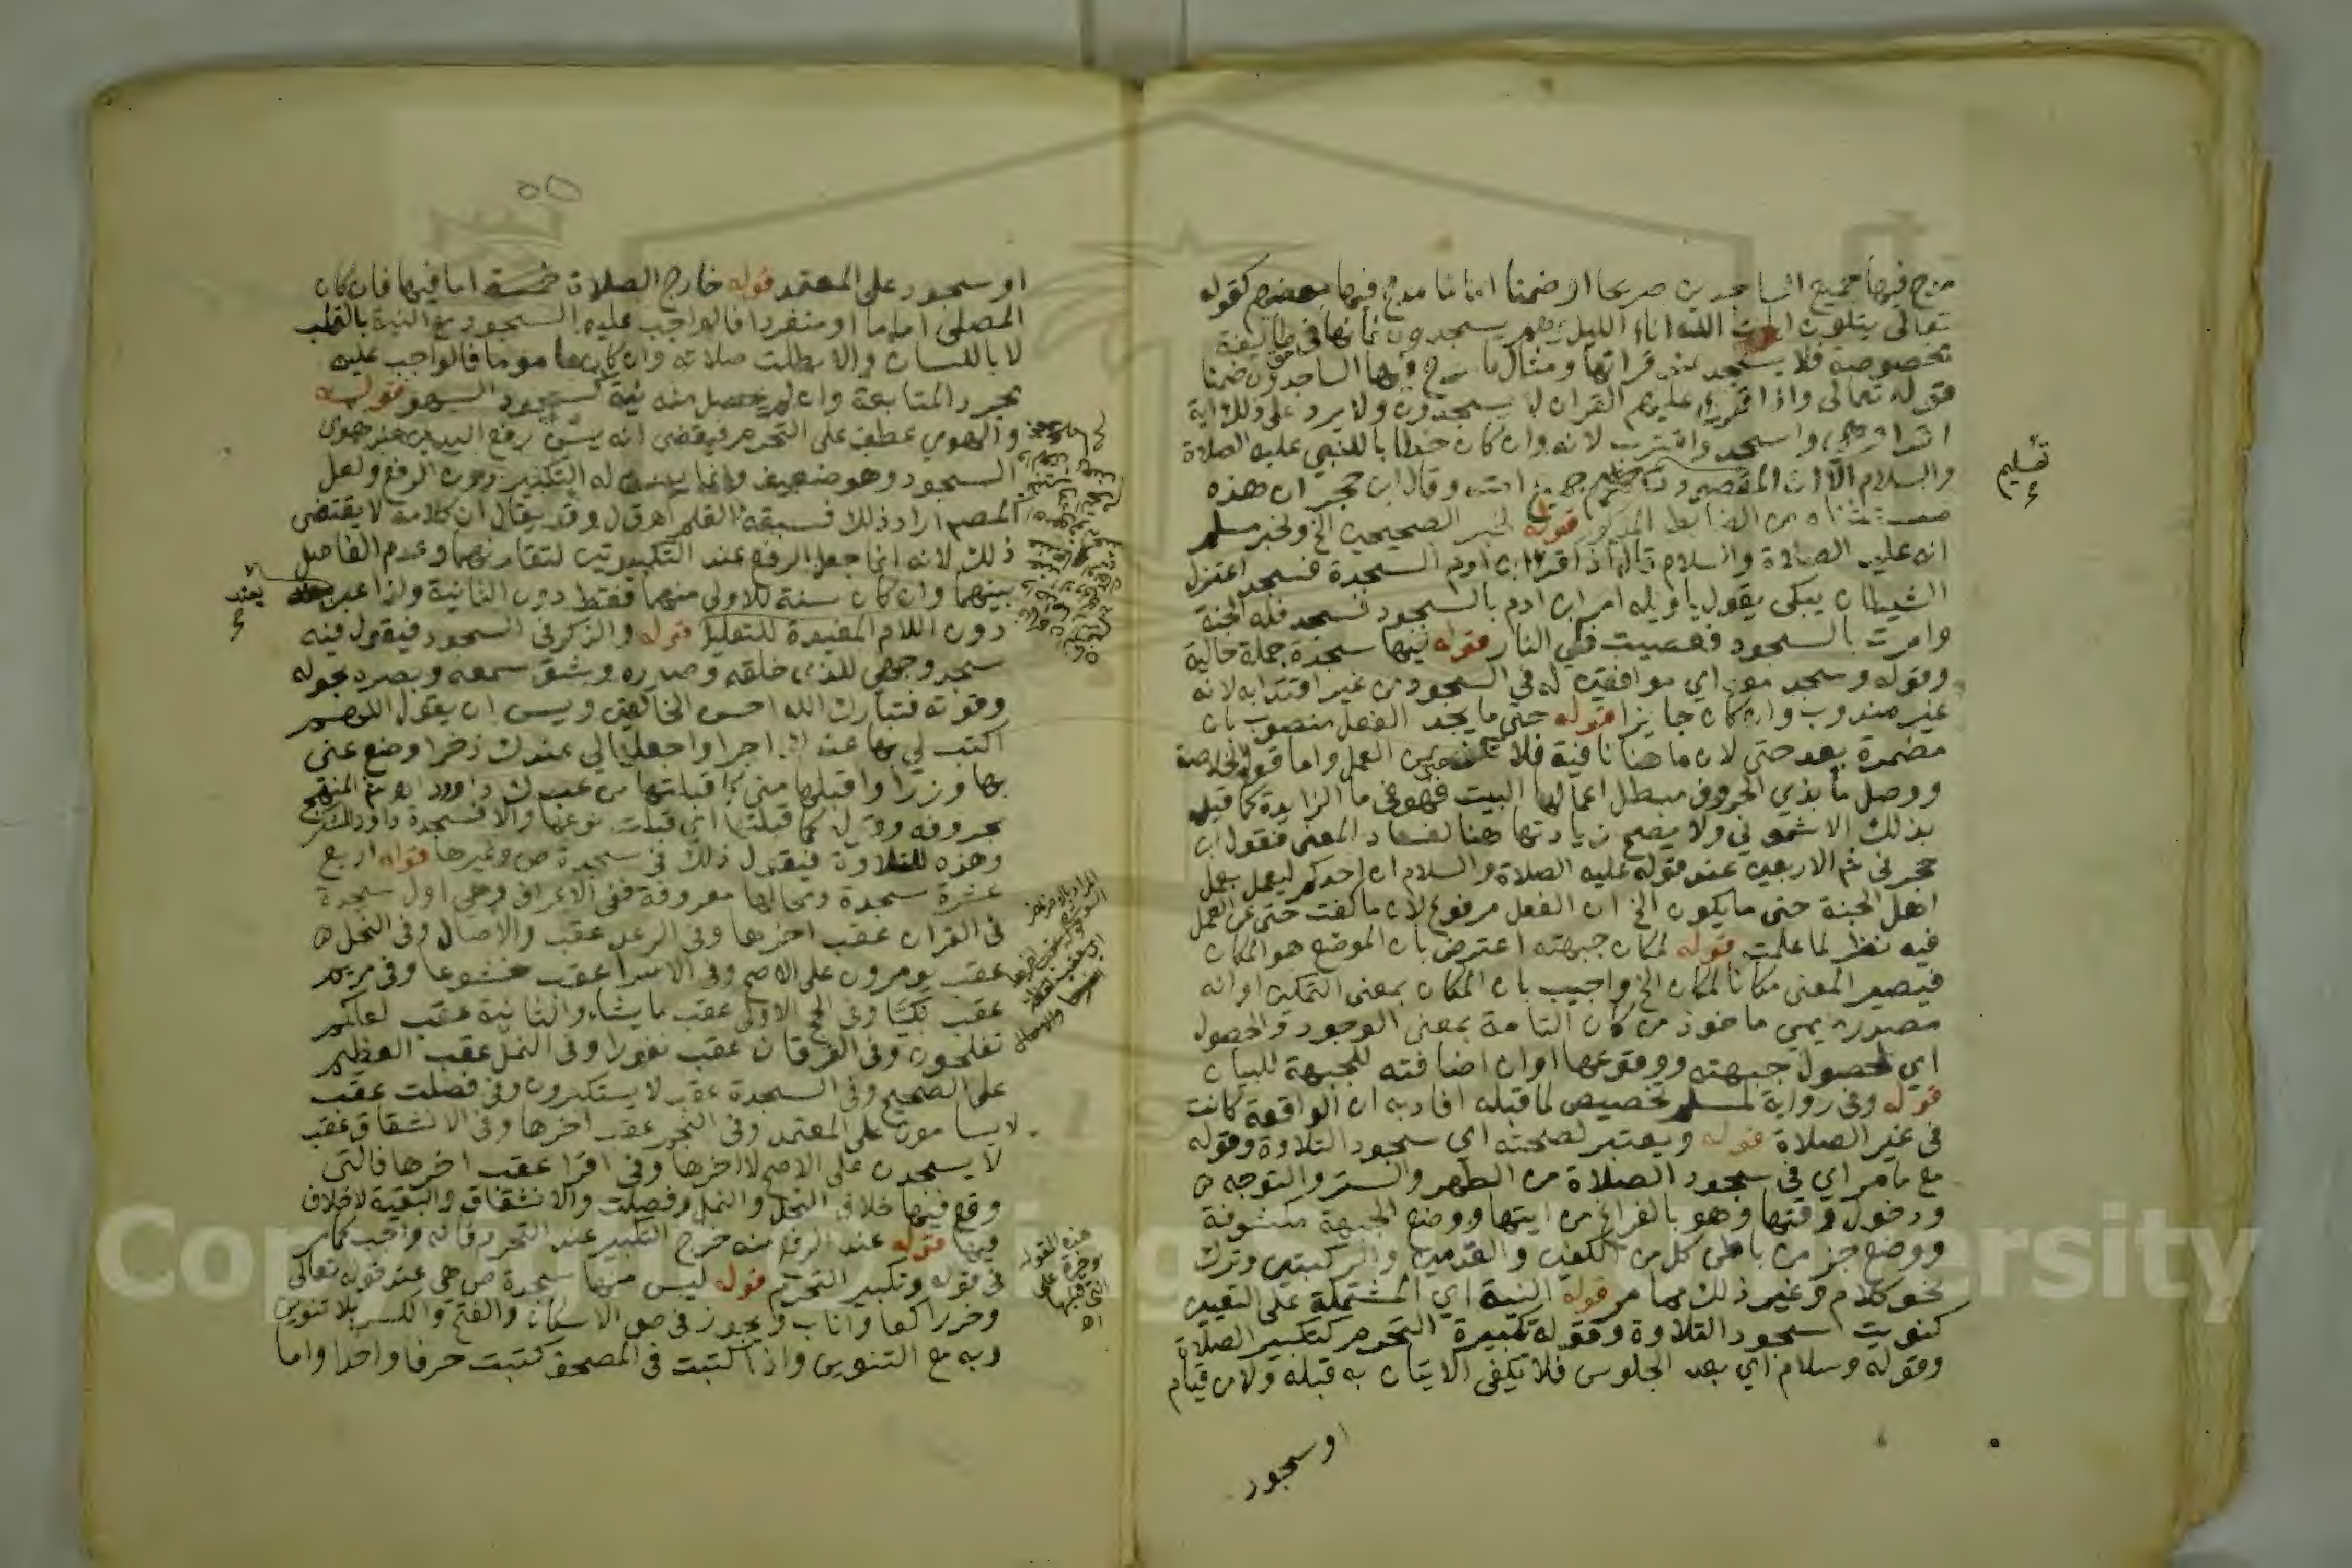 مدح فيها جميع الساجدين صريحا او ضمنا اما ما مدح فيها بعضهم كقوله
تعالى يتلون ايات الله اناء الليل وهم يسجدون فانها في طايفة
مخصوصة فلا يسجد عند قراتها ومثال ما مدح فيها الساجدون ضمنا
قوله تعالى واذا قرئ عليهم القران لا يسجدون ولا يرد على ذلك اية
اقرا وهي واسجد واقترب لانه وان كان خطابا للنبي عليه الصلاة
والسلام الا ان المقصود وقال ابن حجر ان هذه
مستثناه من الضابط المذكور قوله لخبر الصحيحين الخ ولخبر مسلم
انه عليه الصلاة والسلام قال اذا قرا ابن ادم السجدة فسجد اعتزل
الشيطان يبكي يقول يا ويله امر ابن ادم بالسجود فسجد فله الجنة
وامرت بالسجود فعصيت فلي النار قوله فيها سجدة جملة حالية
وقوله وسجد معه اي موافقين له في السجود من غير اقتدا به لانه
غير مندوب وان كان جايزا قوله حتى ما يجد الفعل منصوب بان
مضمرة بعد حتى لان ما هنا نافية فلا حتى عن العمل واما قول الخلاصة
ووصل ما بذي الحروف مبطل اعمالها البيت فهو في ما الزايدة كما قيد
بذلك الاشموني ولا يصح زيادتها هنا لفساد المعنى فقول ابن
حجر في شم الاربعين عند قوله عليه الصلاة والسلام ان احدكم ليعمل بعمل
اهل الجنة حتى ما يكون الخ ان الفعل مرفوع لان ما كفت حتى عن العمل
فيه نظر لما علمت قوله لمكان جبهته اعترض بان الموضع هو المكان
فيصير المعنى مكانا لمكان الخ واجيب بان المكان بمعنى التمكين او انه
مصدر ميمي ماخوذ من كان التامة بمعنى الوجود والحصول
اي لحصول جبهته ووقوعها او ان اضافته للجبهة للبيان
قوله وفي رواية لمسلم تخصيص لما قبله افاد به ان الواقعة كانت
في غير الصلاة قوله ويعتبر لصحته اي سجود التلاوة وقوله
مع ما مر اي في سجود الصلاة من الطهر والستر والتوجه
ودخول وقتها وهو بالفراغ من ايتها ووضع الجبهة مكشوفة
ووضع جز من باطن كل من الكفين والقدمين والركبتين وترك
نحو كلام وغير ذلك مما مر قوله النية اي المشتملة على التعيين
كنويت سجود التلاوة وقوله تكبيرة التحرم كتكبير الصلاة
وقوله وسلام اي بعد الجلوس فلا يكفي الاتيان به قبله ولا من قيام
او سجود
تعليم
او سجود على المعتمد قوله خارج الصلاة اما فيها فان كان
المصلى اماما او منفردا فالواجب عليه السجود مع النية بالقلب
لا باللسان والا بطلت صلاته وان كان ماموما فالواجب عليه
مجرد المتابعة وان لم يحصل منه نية كسجود السهو قوله
والهوي عطف على التحرم فيقتضي انه يسن رفع اليدين عند هوي
السجود وهو ضعيف وانما يسن له التكبير دون الرفع ولعل
المصم اراد ذلك فسبقه القلم اهـ ق ل وقد يقال ان كلامه لا يقتضي
ذلك لانه انما جعل الرفع عند التكبيرتين لتقارنهما وعدم الفاصل
بينهما وان كان سنة للاولى منهما فقط دون الثانية ولذا عبر
بعند
دون اللام المفيدة للتعليل قوله والذكر في السجود فيقول فيه
سجد وجهي للذي خلقه وصوره وشق سمعه وبصره بحوله
وقوته فتبارك الله احسن الخالقين ويسن ان يقول اللهم
اكتب لي بها عندك اجرا واجعلها لي عندك ذخرا وضع عني
بها وزرا واقبلها مني كما قبلتها من عبدك داوود اهـ المنهج
بحروفه وقوله كما قبلتها اي قبلت نوعها والا فسجدة داود للشكر
وهذه للتلاوة فيقول ذلك في سجدة ص وغيرها قوله اربع
عشرة سجدة ومحالها معروفة ففي الاعراف وهي اول سجدة
في القران عقب اخرها وفي الرعد عقب والاصال وفي النحل
عقب يومرون على الاصح وفي الاسرا عقب خشوعا وفي مريم
عقب بكيا وفي الحج الاولى عقب ما يشاء والثانية عقب لعلكم
تفلحون وفي الفرقان عقب نفورا وفي النمل عقب العظيم
على الصحيح وفي السجدة عقب لا يستكبرون وفي فصلت عقب
لا يسامون على المعتمد وفي النجم عقب اخرها وفي الانشقاق عقب
لا يسجدون على الاصح لا اخرها وفي اقرا عقب اخرها فالتي
وقع فيها خلاف النحل والنمل وفصلت والانشقاق والبقية لا خلاف
فيها قوله عند الرفع منه خرج التكبير عند التحرم فانه واجب كما مر
في قوله وتكبير التحرم قوله ليس منها سجدة ص هي عند قوله تعالى
وخر راكعا واناب ويجوز في ص الاسكان والفتح والكسر بلا تنوين
وبه مع التنوين واذا كتبت في المصحف كتبت حرفا واحدا واما
هذه القولة
مؤخرة على
التي قبلها
اهـ